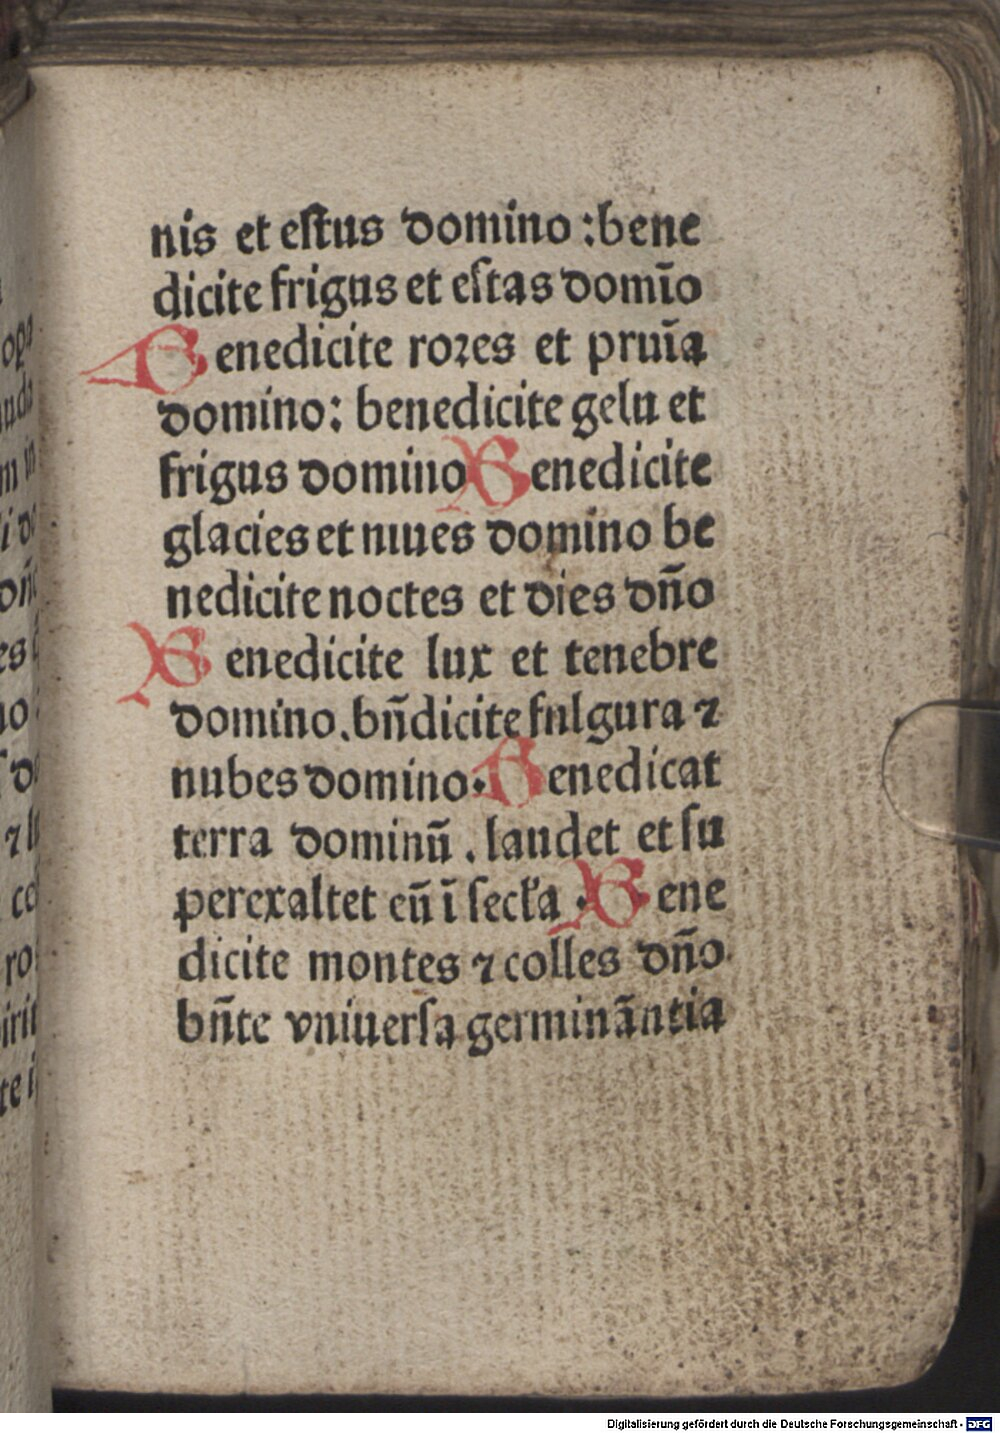 nis et estus domino :bene
dicite frigus et estas domīo
Benedicite rores et pruīa
domino: benedicite gelu et
frigus domino Benedicite
glacies et niues domino be
nedicite noctes et dies dño
Benedicite lux et tenebre
domino. bñdicite fulgura ⁊
nubes domino. Benedicat
terra dominū . laudet et su
perexaltet eū ī secła . Bene
dicite montes ⁊ colles dño.
bñte vniuersa germināntia
Digitalisierung gefördert durch die Deutsche Forschungsgemeinschaft - DFG